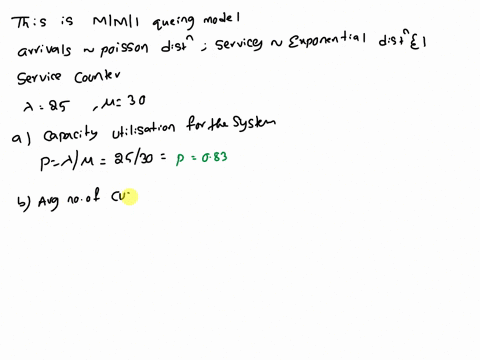 This is M|M|1 queing model
arrivals ~ poisson distⁿ ; services ~ Exponential distⁿ & 1
Service Counter
λ = 25 , μ = 30
a) Capacity utilisation for the System
P = λ/μ = 25/30 = P = 0.83
b) Avg no. of cu